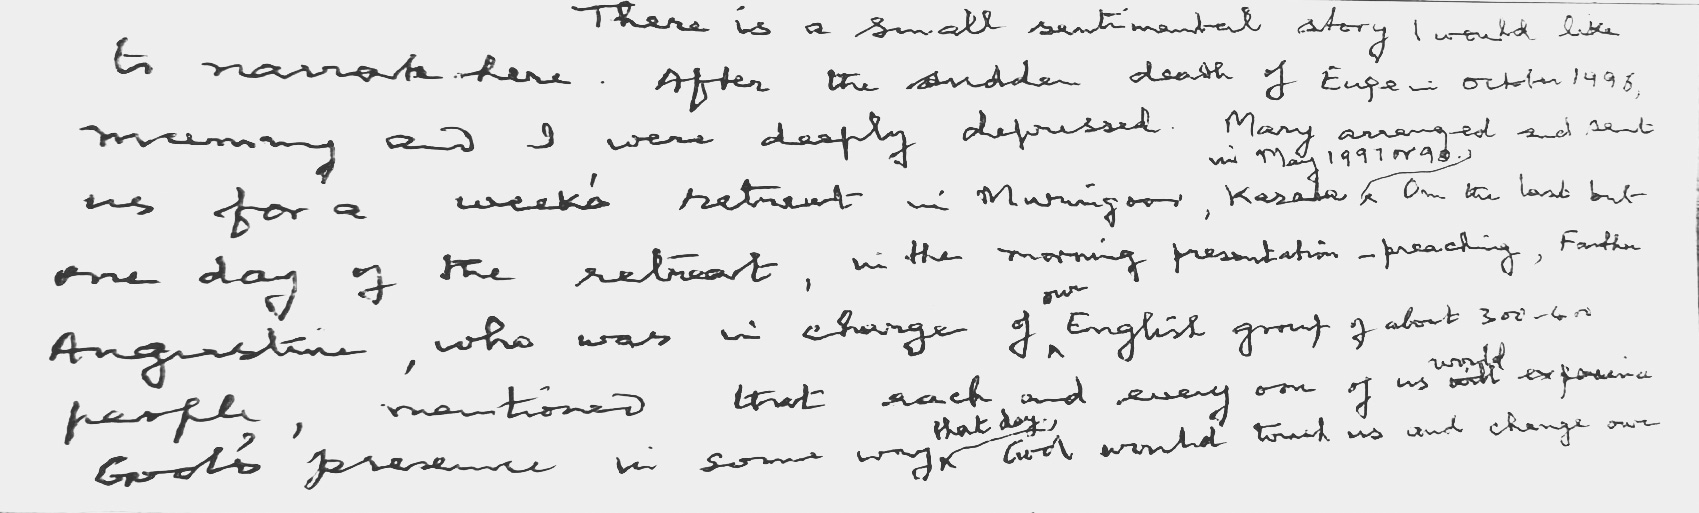 There is a small sentimental story I would like
to narrate here. After the sudden death of Euge in october 1996,
mummy and I were deeply depressed. Mary arranged and sent
in May 1997 or 98.
us for a week's retreat in Muringoor, Kerala On the last but
one day of the retreat, in the morning presentation - preaching, Father
our
Augustine, who was in charge of English group of about 300-400
would
people, mentioned that each and every one of us will experience
that day,
God's presence in some way God would touch us and change our